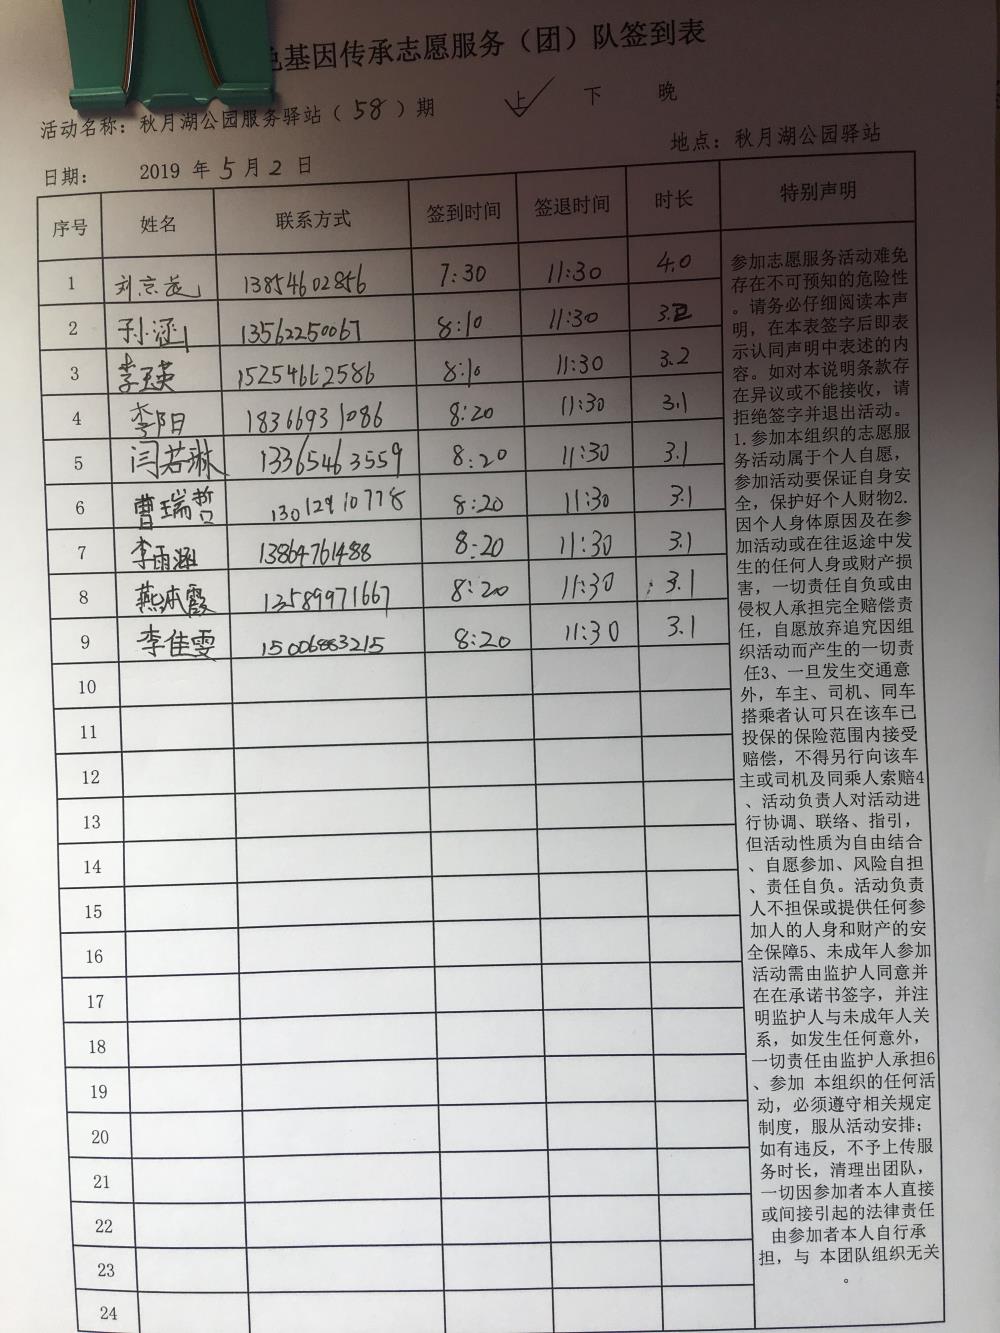 色基因传承志愿服务（团）队签到表
活动名称：秋月湖公园服务驿站（58）期 上 下 晚
地点：秋月湖公园驿站
日期： 2019 年 5 月 2 日
序号 姓名 联系方式 签到时间 签退时间 时长 特别声明
1 刘京 13854602856 7:30 11:30 4.0
2 孙涵 13562250067 8:10 11:30 3.2
3 李玉英 15254662586 8:10 11:30 3.2
4 李阳 18366931086 8:20 11:30 3.1
5 闫若琳 13365463559 8:20 11:30 3.1
6 曹瑞哲 13012910778 8:20 11:30 3.1
7 李雨涵 13864761488 8:20 11:30 3.1
8 燕霞 13589971667 8:20 11:30 3.1
9 李佳雯 15006883215 8:20 11:30 3.1
10
11
12
13
14
15
16
17
18
19
20
21
22
23
24
参加志愿服务活动难免
存在不可预知的危险性
。请务必仔细阅读本声
明，在本表签字后即表
示认同声明中表述的内
容。如对本说明条款存
在异议或不能接收，请
拒绝签字并退出活动。
1.参加本组织的志愿服
务活动属于个人自愿，
参加活动要保证自身安
全，保护好个人财物2.
因个人身体原因及在参
加活动或在往返途中发
生的任何人身或财产损
害，一切责任自负或由
侵权人承担完全赔偿责
任，自愿放弃追究因组
织活动而产生的一切责
任3、一旦发生交通意
外，车主、司机、同车
搭乘者认可只在该车已
投保的保险范围内接受
赔偿，不得另行向该车
主或司机及同乘人索赔4
、活动负责人对活动进
行协调、联络、指引，
但活动性质为自由结合
、自愿参加、风险自担
、责任自负。活动负责
人不担保或提供任何参
加人的人身和财产的安
全保障5、未成年人参加
活动需由监护人同意并
在在承诺书签字，并注
明监护人与未成年人关
系，如发生任何意外，
一切责任由监护人承担6
、参加 本组织的任何活
动，必须遵守相关规定
制度，服从活动安排；
如有违反，不予上传服
务时长，清理出团队，
一切因参加者本人直接
或间接引起的法律责任
由参加者本人自行承
担，与 本团队组织无关
。